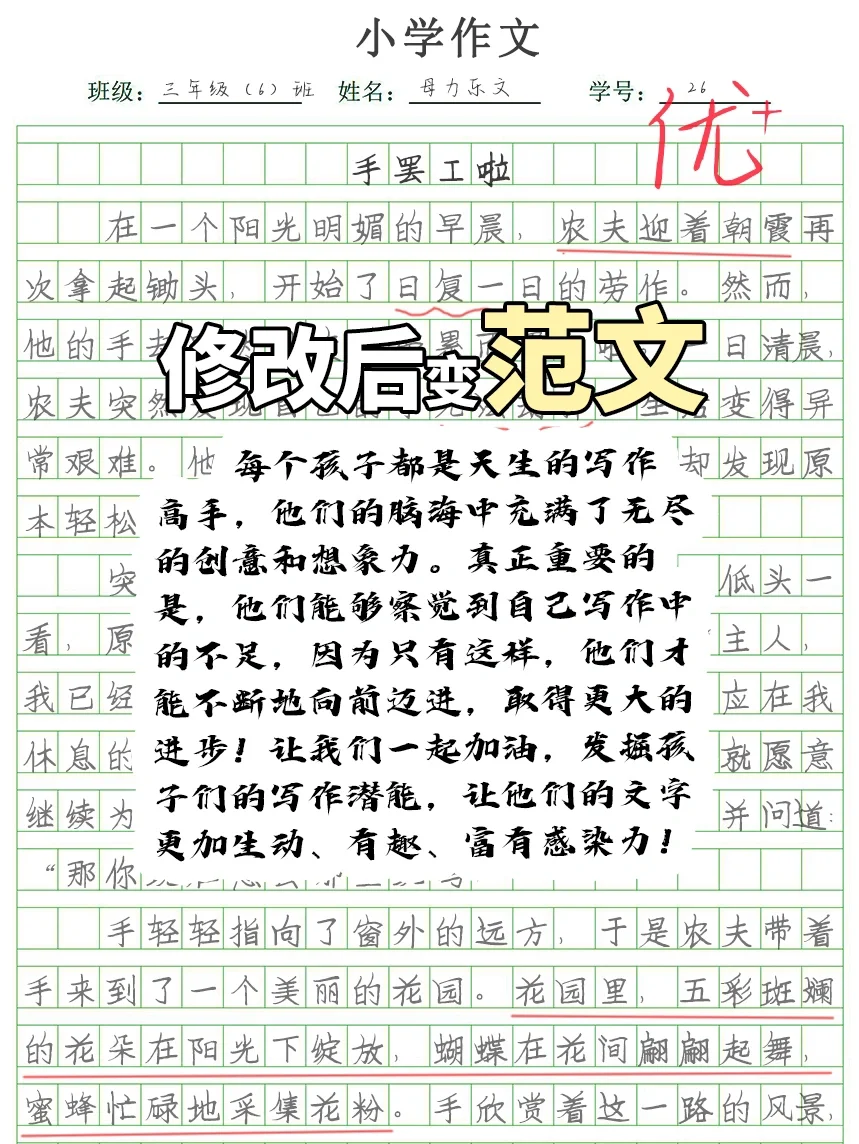 小学作文
班级：三年级（6）班 姓名：母力乐文 学号：26
优+
手罢工啦
在一个阳光明媚的早晨，农夫迎着朝霞再
次拿起锄头，开始了日复一日的劳作。然而，
他的手 日清晨，
修改后变范文
农夫突然发现自己的 变得异
常艰难。他 却发现原
本轻松
每个孩子都是天生的写作
高手，他们的脑海中充满了无尽
的创意和想象力。真正重要的
是，他们能够察觉到自己写作中
的不足，因为只有这样，他们才
能不断地向前迈进，取得更大的
进步！让我们一起加油，发掘孩
子们的写作潜能，让他们的文字
更加生动、有趣、富有感染力！
突 低头一
看，原 “主人，
我已经 应在我
休息的 就愿意
继续为 并问道：
“那你
手轻轻指向了窗外的远方，于是农夫带着
手来到了一个美丽的花园。花园里，五彩斑斓
的花朵在阳光下绽放，蝴蝶在花间翩翩起舞，
蜜蜂忙碌地采集花粉。手欣赏着这一路的风景，